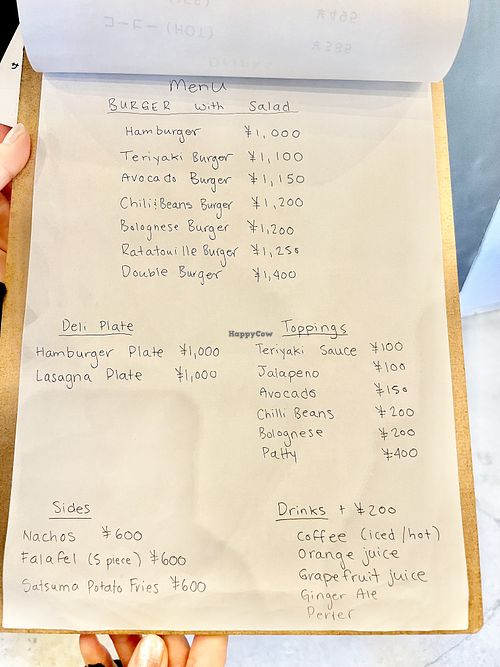 コーヒー (HOT)
¥385
Drinks
Menu
BURGER with Salad
Hamburger ¥1,000
Teriyaki Burger ¥1,100
Avocado Burger ¥1,150
Chili&Beans Burger ¥1,200
Bolognese Burger ¥1,200
Ratatouille Burger ¥1,250
Double Burger ¥1,400
Deli Plate
Hamburger Plate ¥1,000
Lasagna Plate ¥1,000
HappyCow
Toppings
Teriyaki Sauce ¥100
Jalapeno ¥100
Avocado ¥150
Chilli Beans ¥200
Bolognese ¥200
Patty ¥400
Sides
Nachos ¥600
Falafel (5 piece) ¥600
Satsuma Potato Fries ¥600
Drinks + ¥200
Coffee (iced/hot)
Orange juice
Grapefruit juice
Ginger Ale
Perier